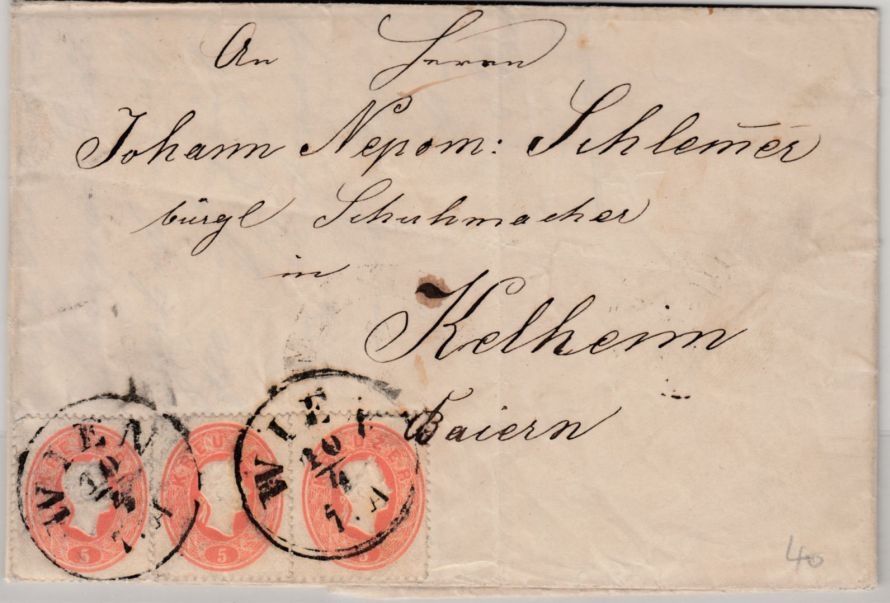 An Herrn
Johann Nepom: Schlem̅er
bürgl Schuhmacher
in
Kelheim
Baiern
WIEN
7. A
WIE
20/4
7. A
5
5
40